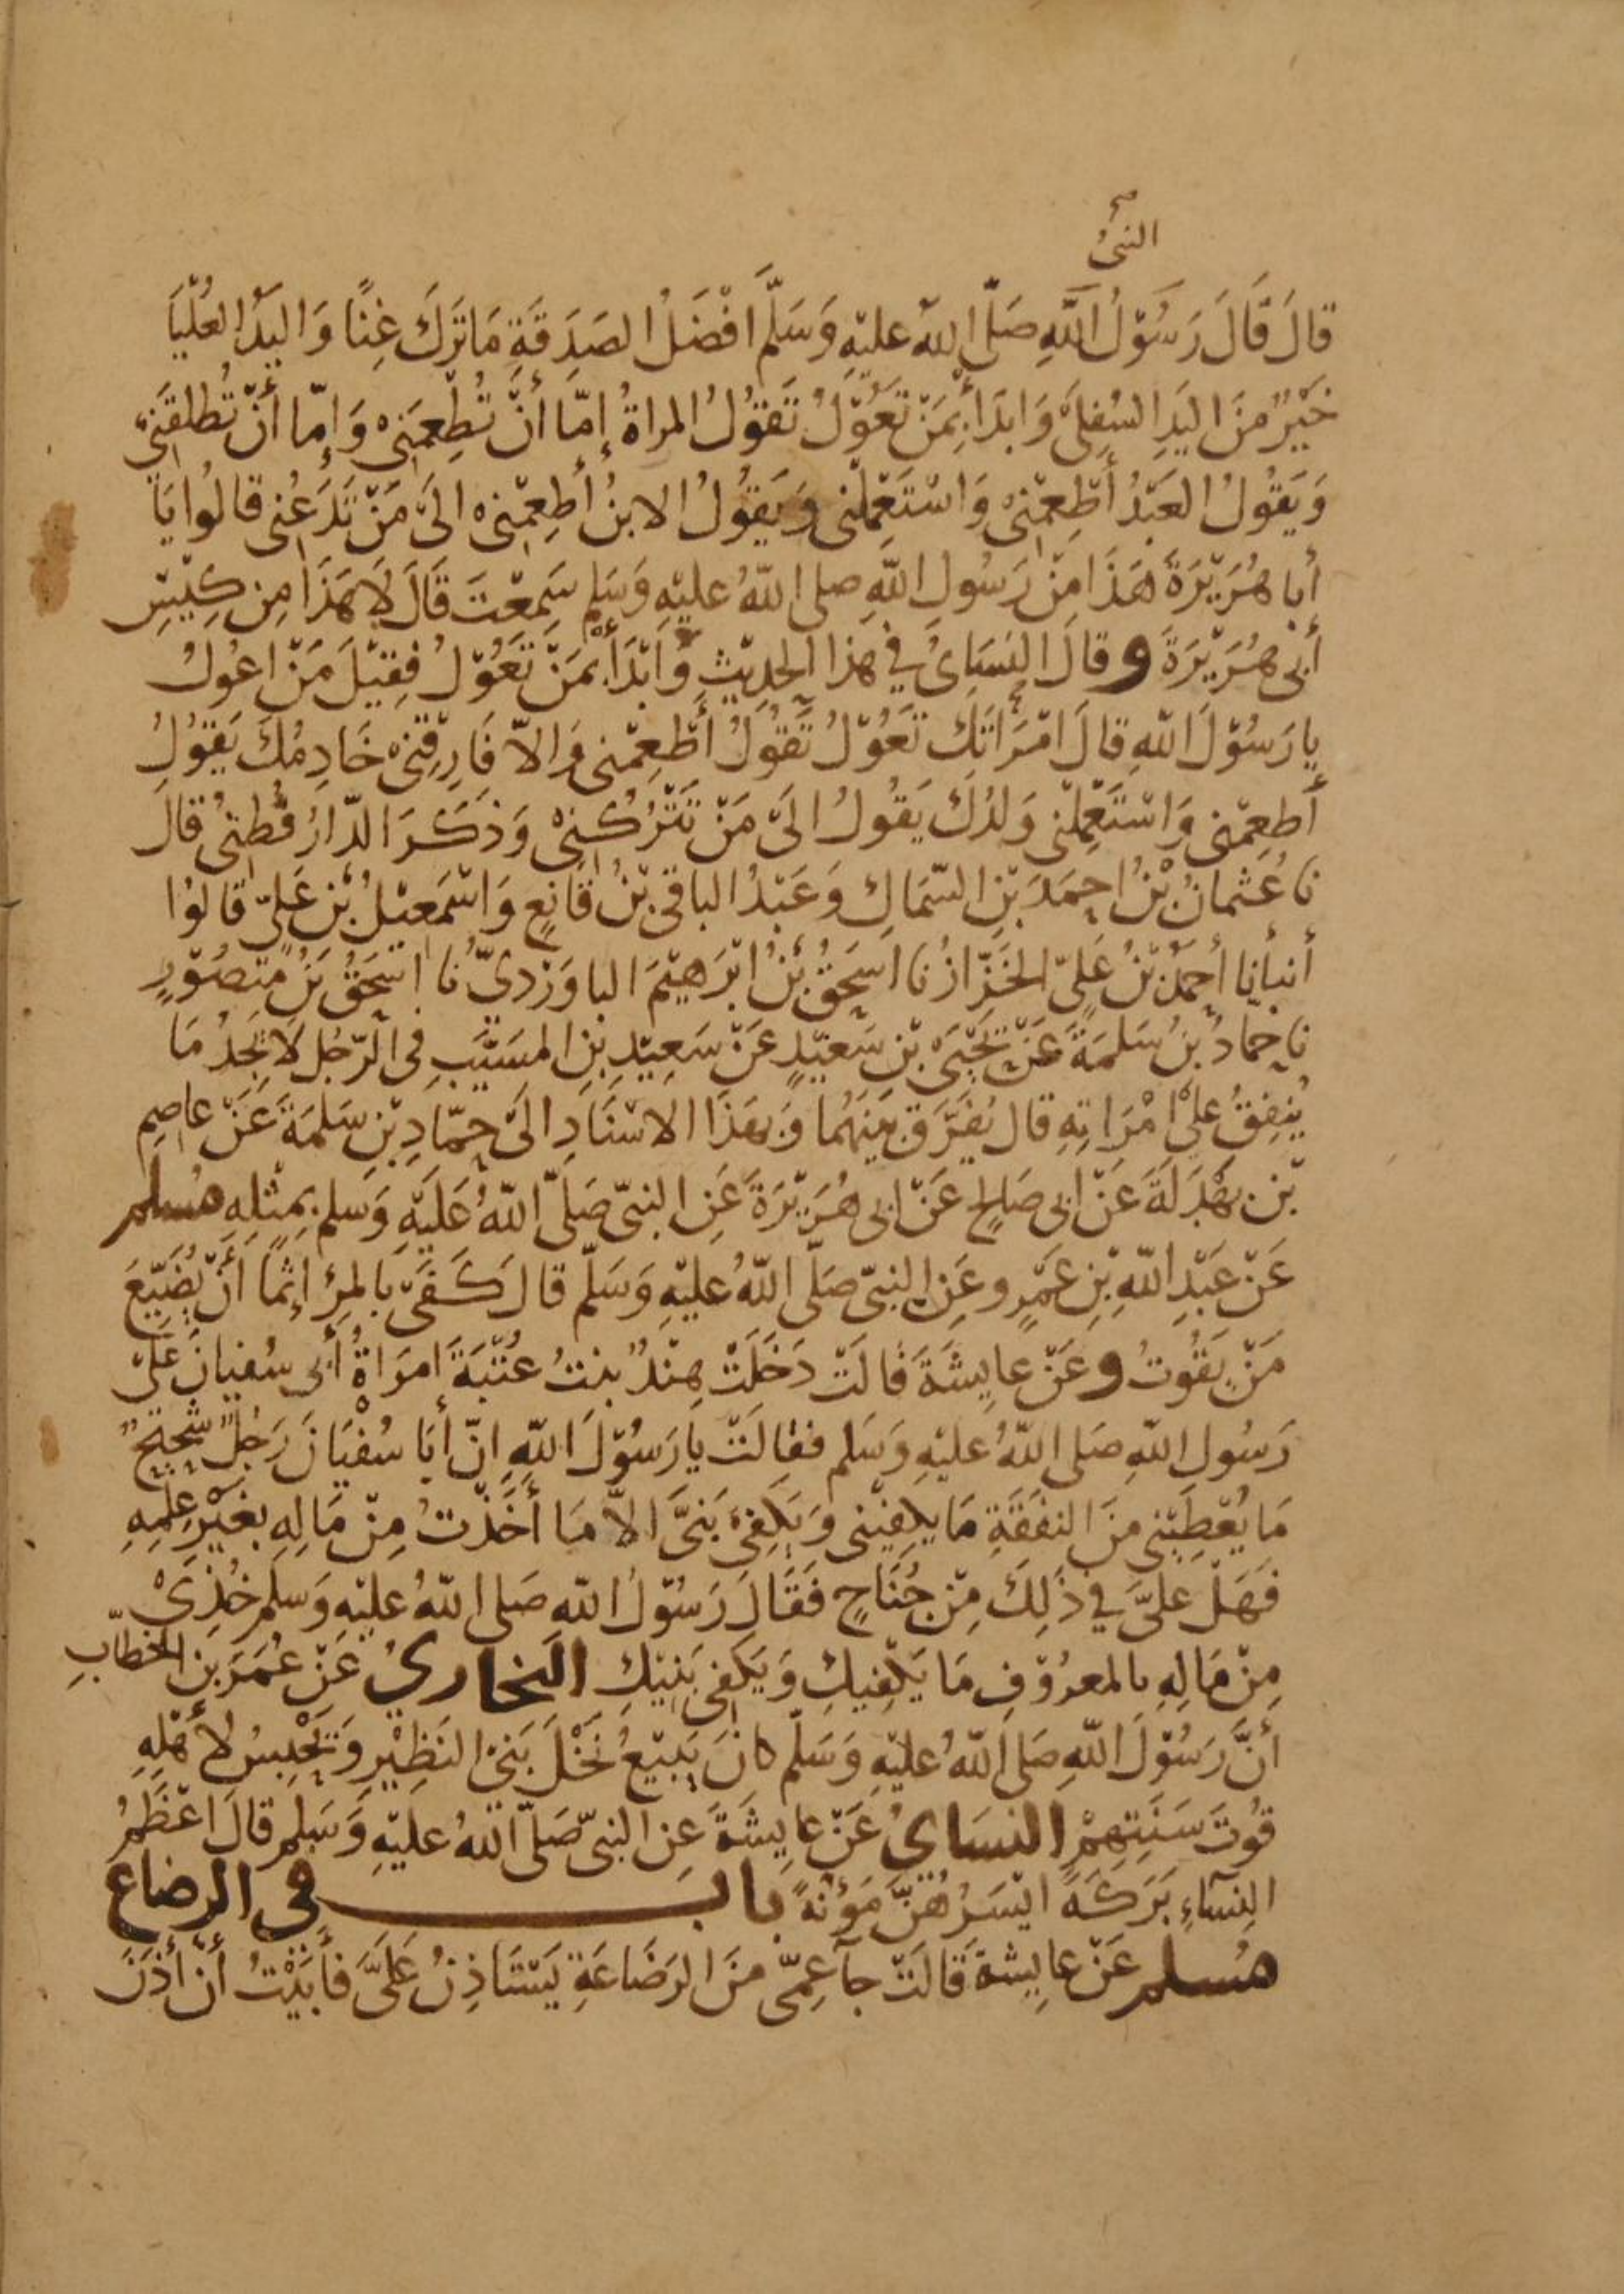 النبىُّ صح
قالَ قَالَ رَسُوْلُ اللَّهِ صَلَّى اللهُ عليْهِ وَسَلَّمَ افْضَلُ الصَدَقَةِ مَا تَرَكَ غِنًا وَاليَدُ العُلْيَا
خَيْرٌ مِنَ اليَدِ السُفلَى وَابدَأ بِمَنْ تَعُوْلُ تَقوُلُ المراةُ إمّا أنْ تُطْعِمَنِىْ وَإمّا أنْ تُطلقَنِىْ
وَيَقُولُ العَبْدُ أطْعِمْنِىْ وَاسْتَعْمِلْنى وَيَقُولُ الابنُ أطعِمْنِىْ الىَ مَنْ تَدَعُنِى قالُوا يَا
أبا هُرَيْرَةَ هَذَا مِنْ رَسُولِ اللَّهِ صلى اللهُ عليْهِ وَسَلم سَمِعْتَ قَالَ لاَ هَذَا مِن كِيْسِ
أبى هُرَيْرَةَ وقالَ النسَائىُ في هذا الحديْثِ وَابْدَأ بمَنْ تَعُوْلُ فقِيْلَ مَنْ اعُولُ
يا رَسُوْلَ اللهِ قالَ امْرَأتَكَ تَعُوْلُ تَقُولُ أطْعِمْنى وَالاّ فَارِقنِىْ خَادِمُكَ يَقُوْلُ
أطعِمْنى وَاسْتَعْمِلْنى وَلدُكَ يَقُولُ الىَ مَنْ تَتْرُكُنِىْ وَذَكَرَ الدّارُ قُطنىُ قالَ
نا عُثمانُ بْنُ احمَدَ بْنِ السّمَاكِ وَعَبْدُ الباقى بْنُ قَانِعٍ وَاسْمَعيْلُ بْن عَلىّ قالوُا
أنبأنا أحمَدُ بْنُ عَلىّ الخَزّازُ نا اسحَقُ بْنُ ابْرَهيْمَ الباوَرْدىّ نا اسحَقُ بنُ مَنصُوْرٍ
نا حمادُ بنُ سَلمَةَ عَنْ يَحْيَى بْنِ سَعيْدٍ عَنْ سَعِيْدِ بنِ المسَيّبِ فى الرّجُلِ لاَ يَجِدُ مَا
يُنفِقُ علىْ امْرَاتِهِ قال يُفَرَّق بَيْنَهُما وَبهَذَا الاسْنَادِ الىَ حمّادِ بْنِ سَلمَةَ عَنْ عاصِمِ
بْن بَهْدَلَةَ عَنْ ابى صَالحٍ عَنْ ابى هُرَيْرَةَ عَنِ النبىّ صَلىّ اللهُ عَليْهِ وَسلم بمِثلِهِ مُسلم
عَنْ عَبْدِ اللهِ بْنِ عَمْرٍو عَنِ النبىّ صَلّى اللهُ عليْهِ وَسَلّم قالَ كَفَى بالمرْءِ إثمًا أنْ يُضَيّعَ
مَنْ يَقُوتُ وعَنْ عايِشَةَ قالَتْ دَخَلَتْ هِنْدٌ بنتُ عُتْبَةَ امرَاةُ أبى سُفيانَ عَلىْ
رَسُول اللهِ صَلى اللهُ عليْهِ وَسَلم فقالَتْ يا رَسُوْلَ اللهِ انّ أبَا سُفيَانَ رَجُلٌ شحِيْحٌ
مَا يُعْطِيْنى مِنَ النفَقَةِ مَا يكفِيْنى وَيَكفِى بَنىَّ الاّ مَا أخَذْتُ مِنْ مَالِهِ بغَيْرِ عِلمِهِ
فَهَلْ علىَّ في ذَلِكَ مِنْ جُنَاحٍ فَقَالَ رَسُوْلُ اللهِ صَلى اللهُ عليْهِ وَسَلم خُذِىْ
مِنْ مَالِهِ بالمعرُوْفِ مَا يَكْفِيكِ وَيَكفِى بَنِيْكِ البخارىُ عَنْ عُمَرَ بن الخطّابِ
أنَّ رَسُوْلَ اللهِ صَلى اللهُ عليْهِ وَسَلّم كانَ يَبيْعُ نَخْلَ بَنِىْ النَظِيْرِ وَيَحْبِسُ لأهْلِهِ
قُوتَ سَنَتِهِمْ النسَاىُ عَنْ عايِشَةَ عَنِ النبىّ صَلّى اللهُ عليْهِ وَسَلم قالَ اعْظَمُ
النِسَآءِ بَرَكَةً ايْسَرُهُنَّ مَؤنَةً بابـــــ في الرضاع
مُسلم عَنْ عايِشَةَ قَالَتْ جآ عمّى مِنَ الرَضَاعَةِ يَسْتَاذِنُ عَلَىَّ فأبَيْتُ أنْ أذَنَ